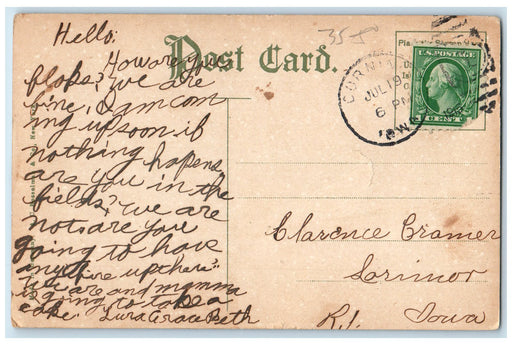 Hello,
How are you
floks? we are
fine, I am com
ing up soon if
nothing hapens
are you in the
fields? we are
not are you
going to have
any
fire up there?
we are and mamma
is going to take a
cake. Lura Grace Beth
35
Post Card.
CORNI
JUL 19
6 PM
U.S. POSTAGE
1 CENT 1
Clarence Cramer
Lorimor
R.I. Iowa